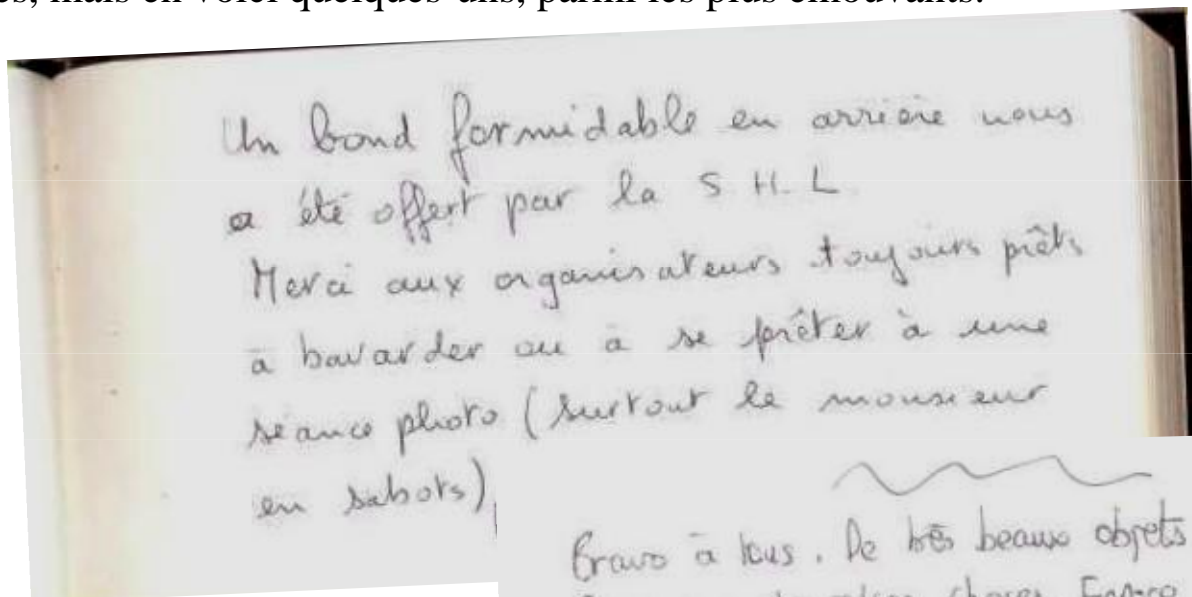 mais en voici quelques-uns, parmi les plus émouvants.
Un bond formidable en arrière nous
a été offert par la S.H.L
Merci aux organisateurs toujours prêts
à bavarder ou à se prêter à une
séance photo (surtout le monsieur
en sabots)
Bravo à tous. De très beaux objets
choses